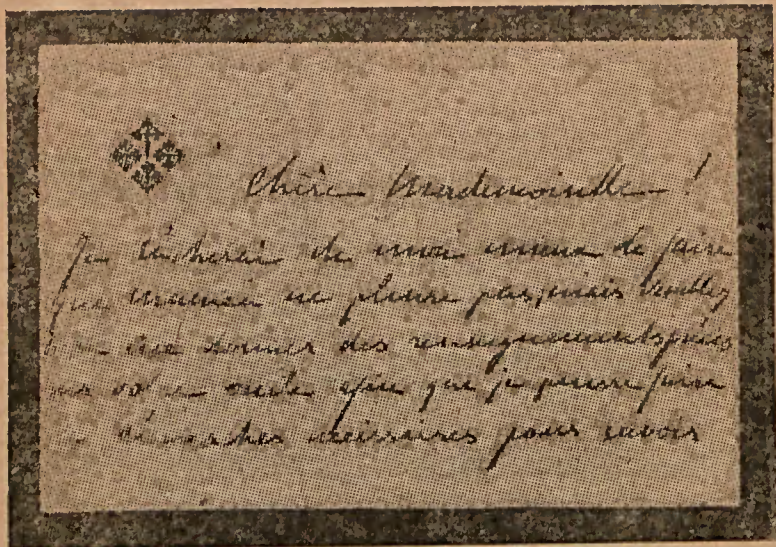 Chère Mademoiselle !
Je tâcherai de mon mieux de faire
que maman ne pleure pas, mais veuillez
me donner des renseignements précis
sur votre oncle afin que je puisse faire
démarches nécessaires pour savoir